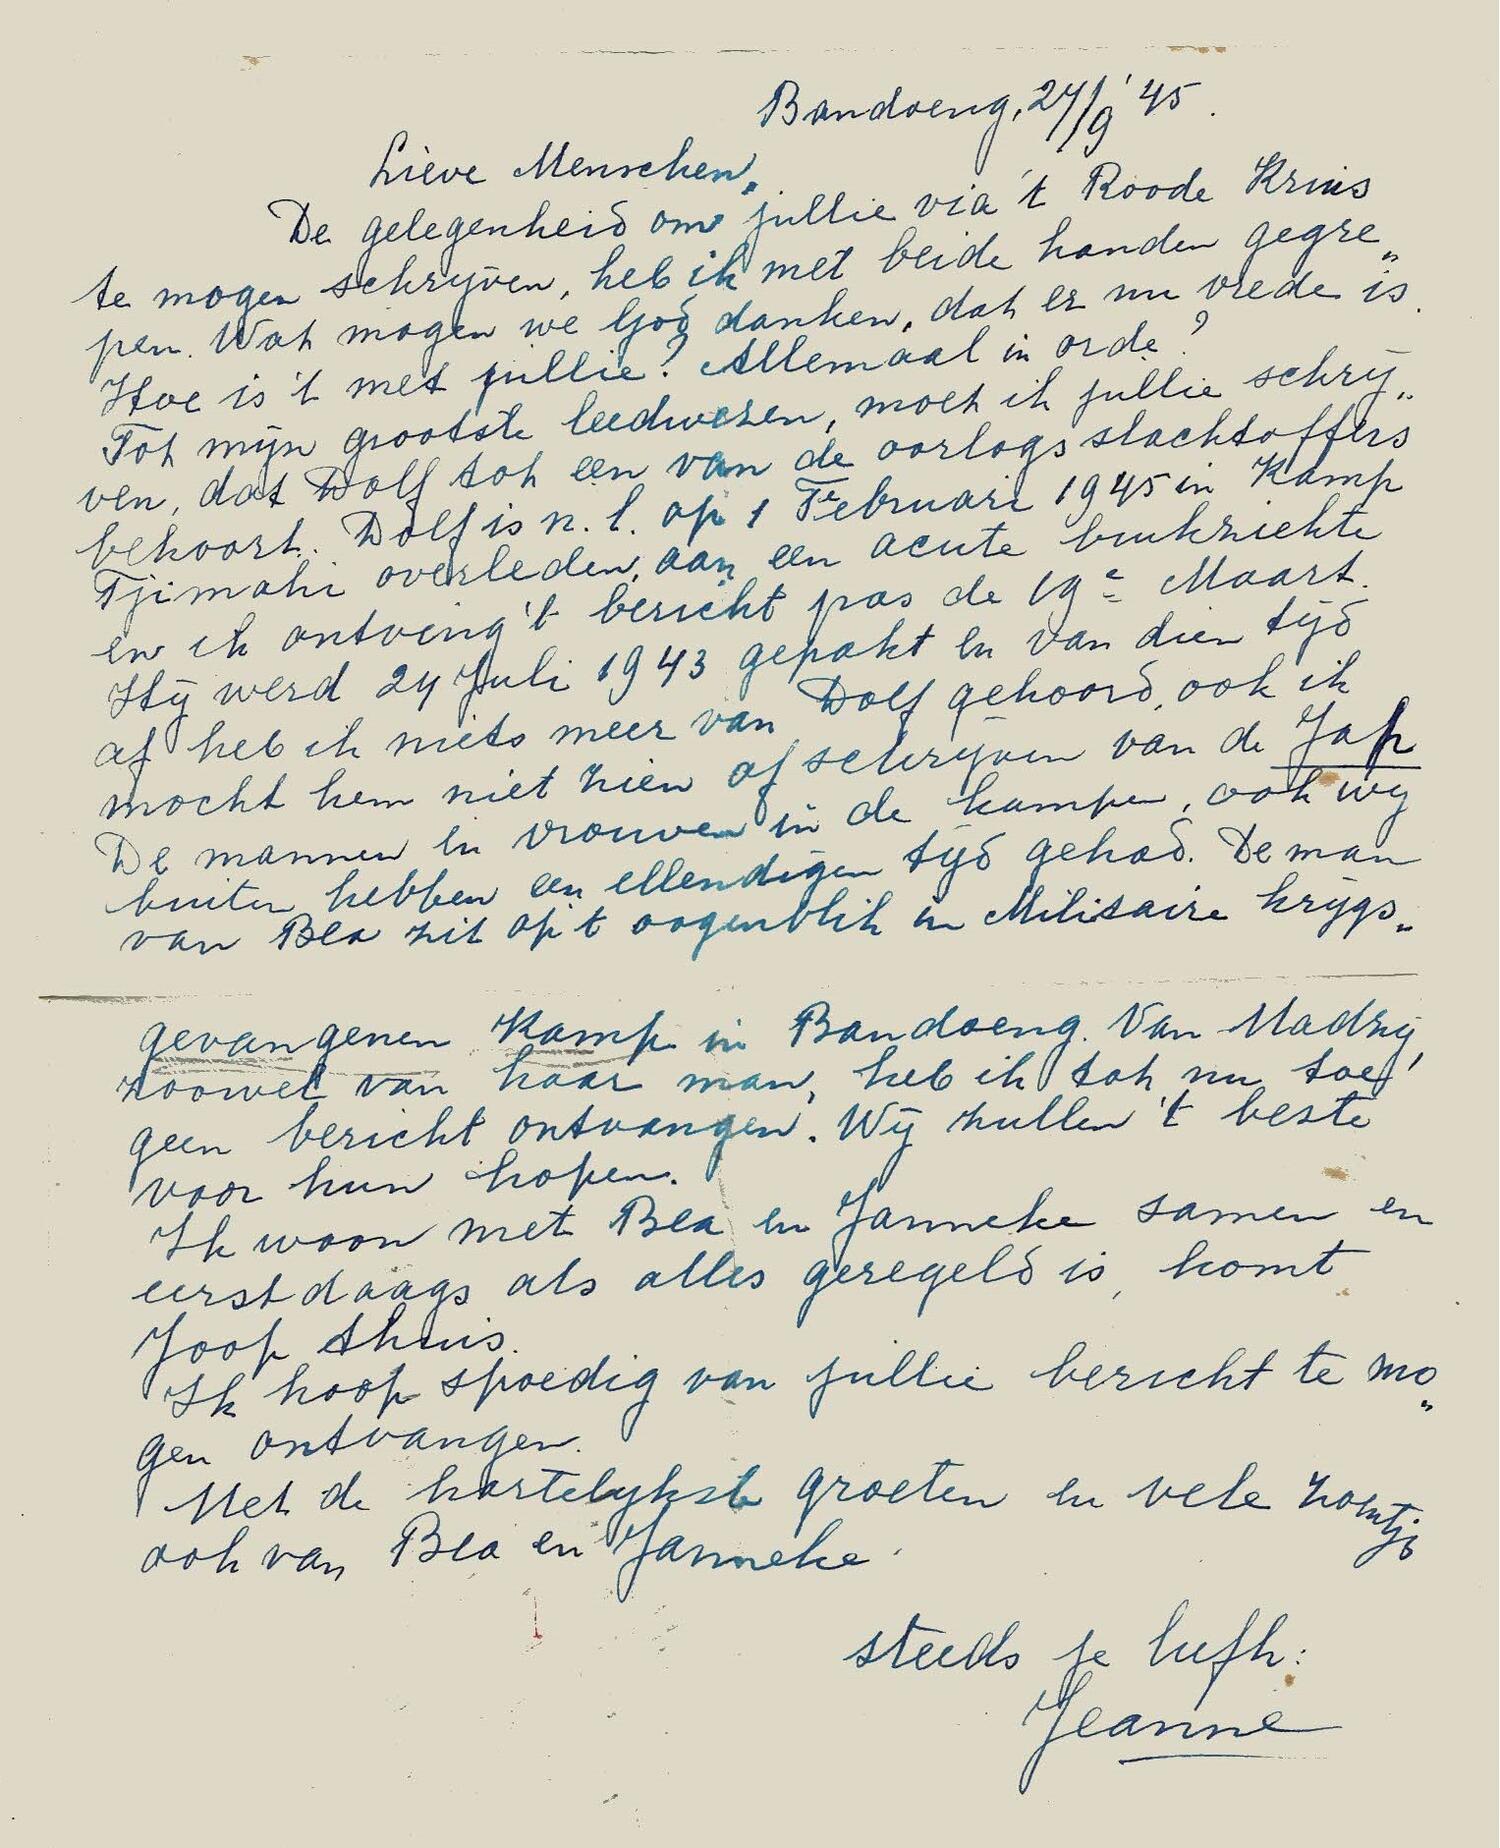 Bandoeng, 24/9 '45.
Lieve Menschen,
De gelegenheid om jullie via 't Roode Kruis
te mogen schrijven, heb ik met beide handen gegre„
pen. Wat mogen we God danken, dat er nu vrede is.
Hoe is 't met jullie? Allemaal in orde?
Tot mijn grootste leedwezen, moet ik jullie schrij„
ven, dat Dolf tot een van de oorlogsslachtoffers
behoort. Dolf is n.l. op 1 Februari 1945 in Kamp
Tjimahi overleden, aan een acute buikziekte
en ik ontving 't bericht pas de 19e Maart.
Hij werd 24 Juli 1943 gepakt en van dien tijd
af heb ik niets meer van Dolf gehoord, ook ik
mocht hem niet zien of schrijven van de Jap
De mannen en vrouwen in de kampen, ook wij
buiten hebben een ellendigen tijd gehad. De man
van Bea zit op 't oogenblik in Militaire krijgs„
gevangenen Kamp in Bandoeng. Van Madzy,
zoowel van haar man, heb ik tot nu toe,
geen bericht ontvangen. Wij zullen 't beste
voor hun hopen.
Ik woon met Bea en Janneke samen en
eerstdaags als alles geregeld is, komt
Joop thuis.
Ik hoop spoedig van jullie bericht te mo„
gen ontvangen.
Met de hartelijkste groeten en vele zoentjes
ook van Bea en Janneke.
steeds je liefh:
Jeanne